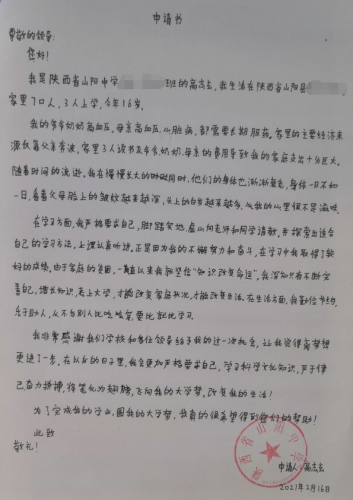 申请书
尊敬的领导:
您好!
我是陕西省山阳中学 班的高志玄,我生活在陕西省山阳县
家里7口人,3人上学,今年16岁。
我的爷爷奶奶高血压,母亲高血压,心脏病,都需要长期服药,家里的主要经济来
源依靠父亲务农,家里3人读书及爷爷奶奶,母亲的费用导致我的家庭支出十分巨大,
随着时间的流逝,我在慢慢长大的时候同时,他们的身体也渐渐衰老,身体一日不如
一日,看着父母脸上的皱纹越来越深,头上的白发越来越多,我的心里很不是滋味。
在学习方面,我严格要求自己,脚踏实地,虚心向老师和同学请教,并探索出适合
自己的学习方法,上课认真听讲,正是因为我的不懈努力和奋斗,在学习中我取得了较
好的成绩,由于家庭的贫困,一直以来我都坚信“知识改变命运”,我深知只有不断完
善自己,增长知识,考上大学,才能改变家庭状况,才能改变生活。在生活方面,我勤俭节约,
乐于助人,从不与别人比吃比穿,要比就比学习。
我非常感谢我们学校和各位领导给予我的这一次机会,让我觉得离梦想
更进了一步,在以后的日子里,我会更加严格要求自己,学习科学文化知识,严于律
己,奋力拼搏,将笔化为翅膀,飞向我的大学梦,改变我的生活!
为了完成我的学业,圆我的大学梦,我真的很希望得到你们的帮助!
此致
敬礼!
陕西省山阳中学
申请人:高志玄
2021年2月16日